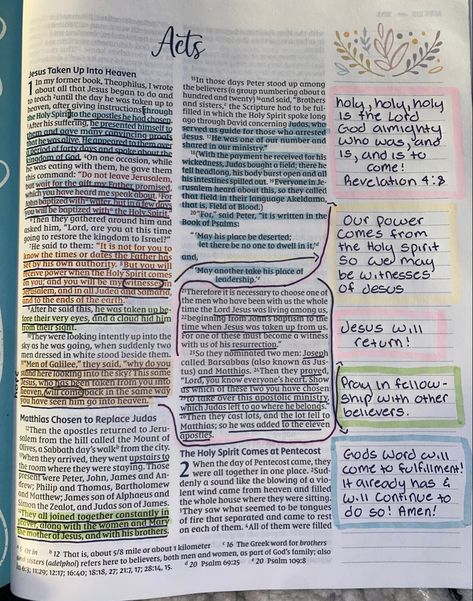 Acts
Jesus Taken Up Into Heaven
1 In my former book, Theophilus, I wrote
about all that Jesus began to do and
to teach ²until the day he was taken up to
heaven, after giving instructions through
the Holy Spirit to the apostles he had chosen.
³After his suffering, he presented himself to
them and gave many convincing proofs
that he was alive. He appeared to them over
a period of forty days and spoke about the
kingdom of God. ⁴On one occasion, while
he was eating with them, he gave them
this command: "Do not leave Jerusalem,
but wait for the gift my Father promised,
which you have heard me speak about. ⁵For
John baptized with water, but in a few days
you will be baptized with the Holy Spirit."
⁶Then they gathered around him and
asked him, "Lord, are you at this time
going to restore the kingdom to Israel?"
⁷He said to them: "It is not for you to
know the times or dates the Father has
set by his own authority. ⁸But you will
receive power when the Holy Spirit comes
on you; and you will be my witnesses in
Jerusalem, and in all Judea and Samaria,
and to the ends of the earth."
⁹After he said this, he was taken up be-
fore their very eyes, and a cloud hid him
from their sight.
¹⁰They were looking intently up into the
sky as he was going, when suddenly two
men dressed in white stood beside them.
¹¹"Men of Galilee," they said, "why do you
stand here looking into the sky? This same
Jesus, who has been taken from you into
heaven, will come back in the same way
you have seen him go into heaven."
Matthias Chosen to Replace Judas
¹²Then the apostles returned to Jeru-
salem from the hill called the Mount of
Olives, a Sabbath day's walk from the city.
¹³When they arrived, they went upstairs to
the room where they were staying. Those
present were Peter, John, James and An-
drew; Philip and Thomas, Bartholomew
and Matthew; James son of Alphaeus and
Simon the Zealot, and Judas son of James.
¹⁴They all joined together constantly in
prayer, along with the women and Mary
the mother of Jesus, and with his brothers.
¹⁵In those days Peter stood up among
the believers (a group numbering about a
hundred and twenty) ¹⁶and said, "Brothers
and sisters, the Scripture had to be ful-
filled in which the Holy Spirit spoke long
ago through David concerning Judas, who
served as guide for those who arrested
Jesus. ¹⁷He was one of our number and
shared in our ministry."
¹⁸(With the payment he received for his
wickedness, Judas bought a field; there he
fell headlong, his body burst open and all
his intestines spilled out. ¹⁹Everyone in Je-
rusalem heard about this, so they called
that field in their language Akeldama,
that is, Field of Blood.)
²⁰"For," said Peter, "it is written in the
Book of Psalms:
"'May his place be deserted;
let there be no one to dwell in it,'
and,
"'May another take his place of
leadership.'
²¹Therefore it is necessary to choose one of
the men who have been with us the whole
time the Lord Jesus was living among us,
²²beginning from John's baptism to the
time when Jesus was taken up from us.
For one of these must become a witness
with us of his resurrection."
²³So they nominated two men: Joseph
called Barsabbas (also known as Jus-
tus) and Matthias. ²⁴Then they prayed,
"Lord, you know everyone's heart. Show
us which of these two you have chosen
²⁵to take over this apostolic ministry,
which Judas left to go where he belongs."
²⁶Then they cast lots, and the lot fell to
Matthias; so he was added to the eleven
apostles.
The Holy Spirit Comes at Pentecost
2 When the day of Pentecost came, they
were all together in one place. ²Sud-
denly a sound like the blowing of a vi-
olent wind came from heaven and filled
the whole house where they were sitting.
³They saw what seemed to be tongues
of fire that separated and came to rest
on each of them. ⁴All of them were filled
b 12 That is, about 5/8 mile or about 1 kilometer c 16 The Greek word for brothers
sisters (adelphoi) refers here to believers, both men and women, as part of God's family; also
6:3; 11:29; 12:17; 16:40; 18:18, 27; 21:7, 17; 28:14, 15. d 20 Psalm 69:25 e 20 Psalm 109:8
holy, holy, holy
is the Lord
God almighty
who was, and
is, and is to
come!
Revelation 4:8
Our power
comes from
the Holy spirit
so we may
be witnesses
of Jesus
Jesus will
return!
Pray in fellow-
ship with other
believers.
Gods word will
come to fulfillment!
It already has &
will continue to
do so! Amen!